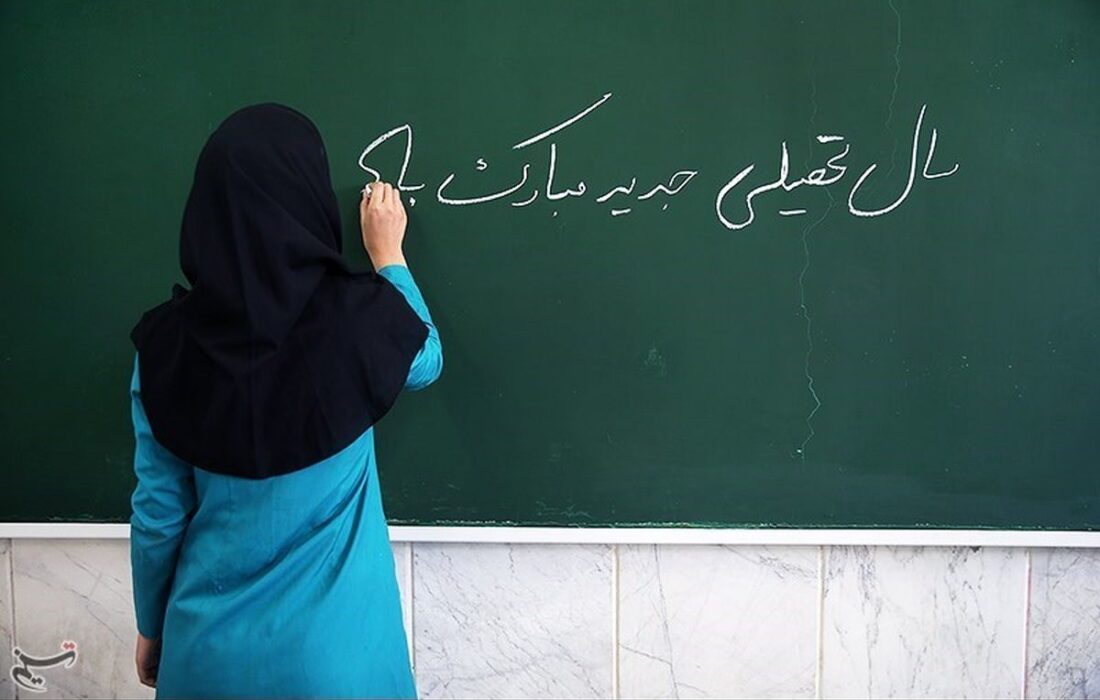 سال تحصیلی جدید مبارک باد
تسنیم